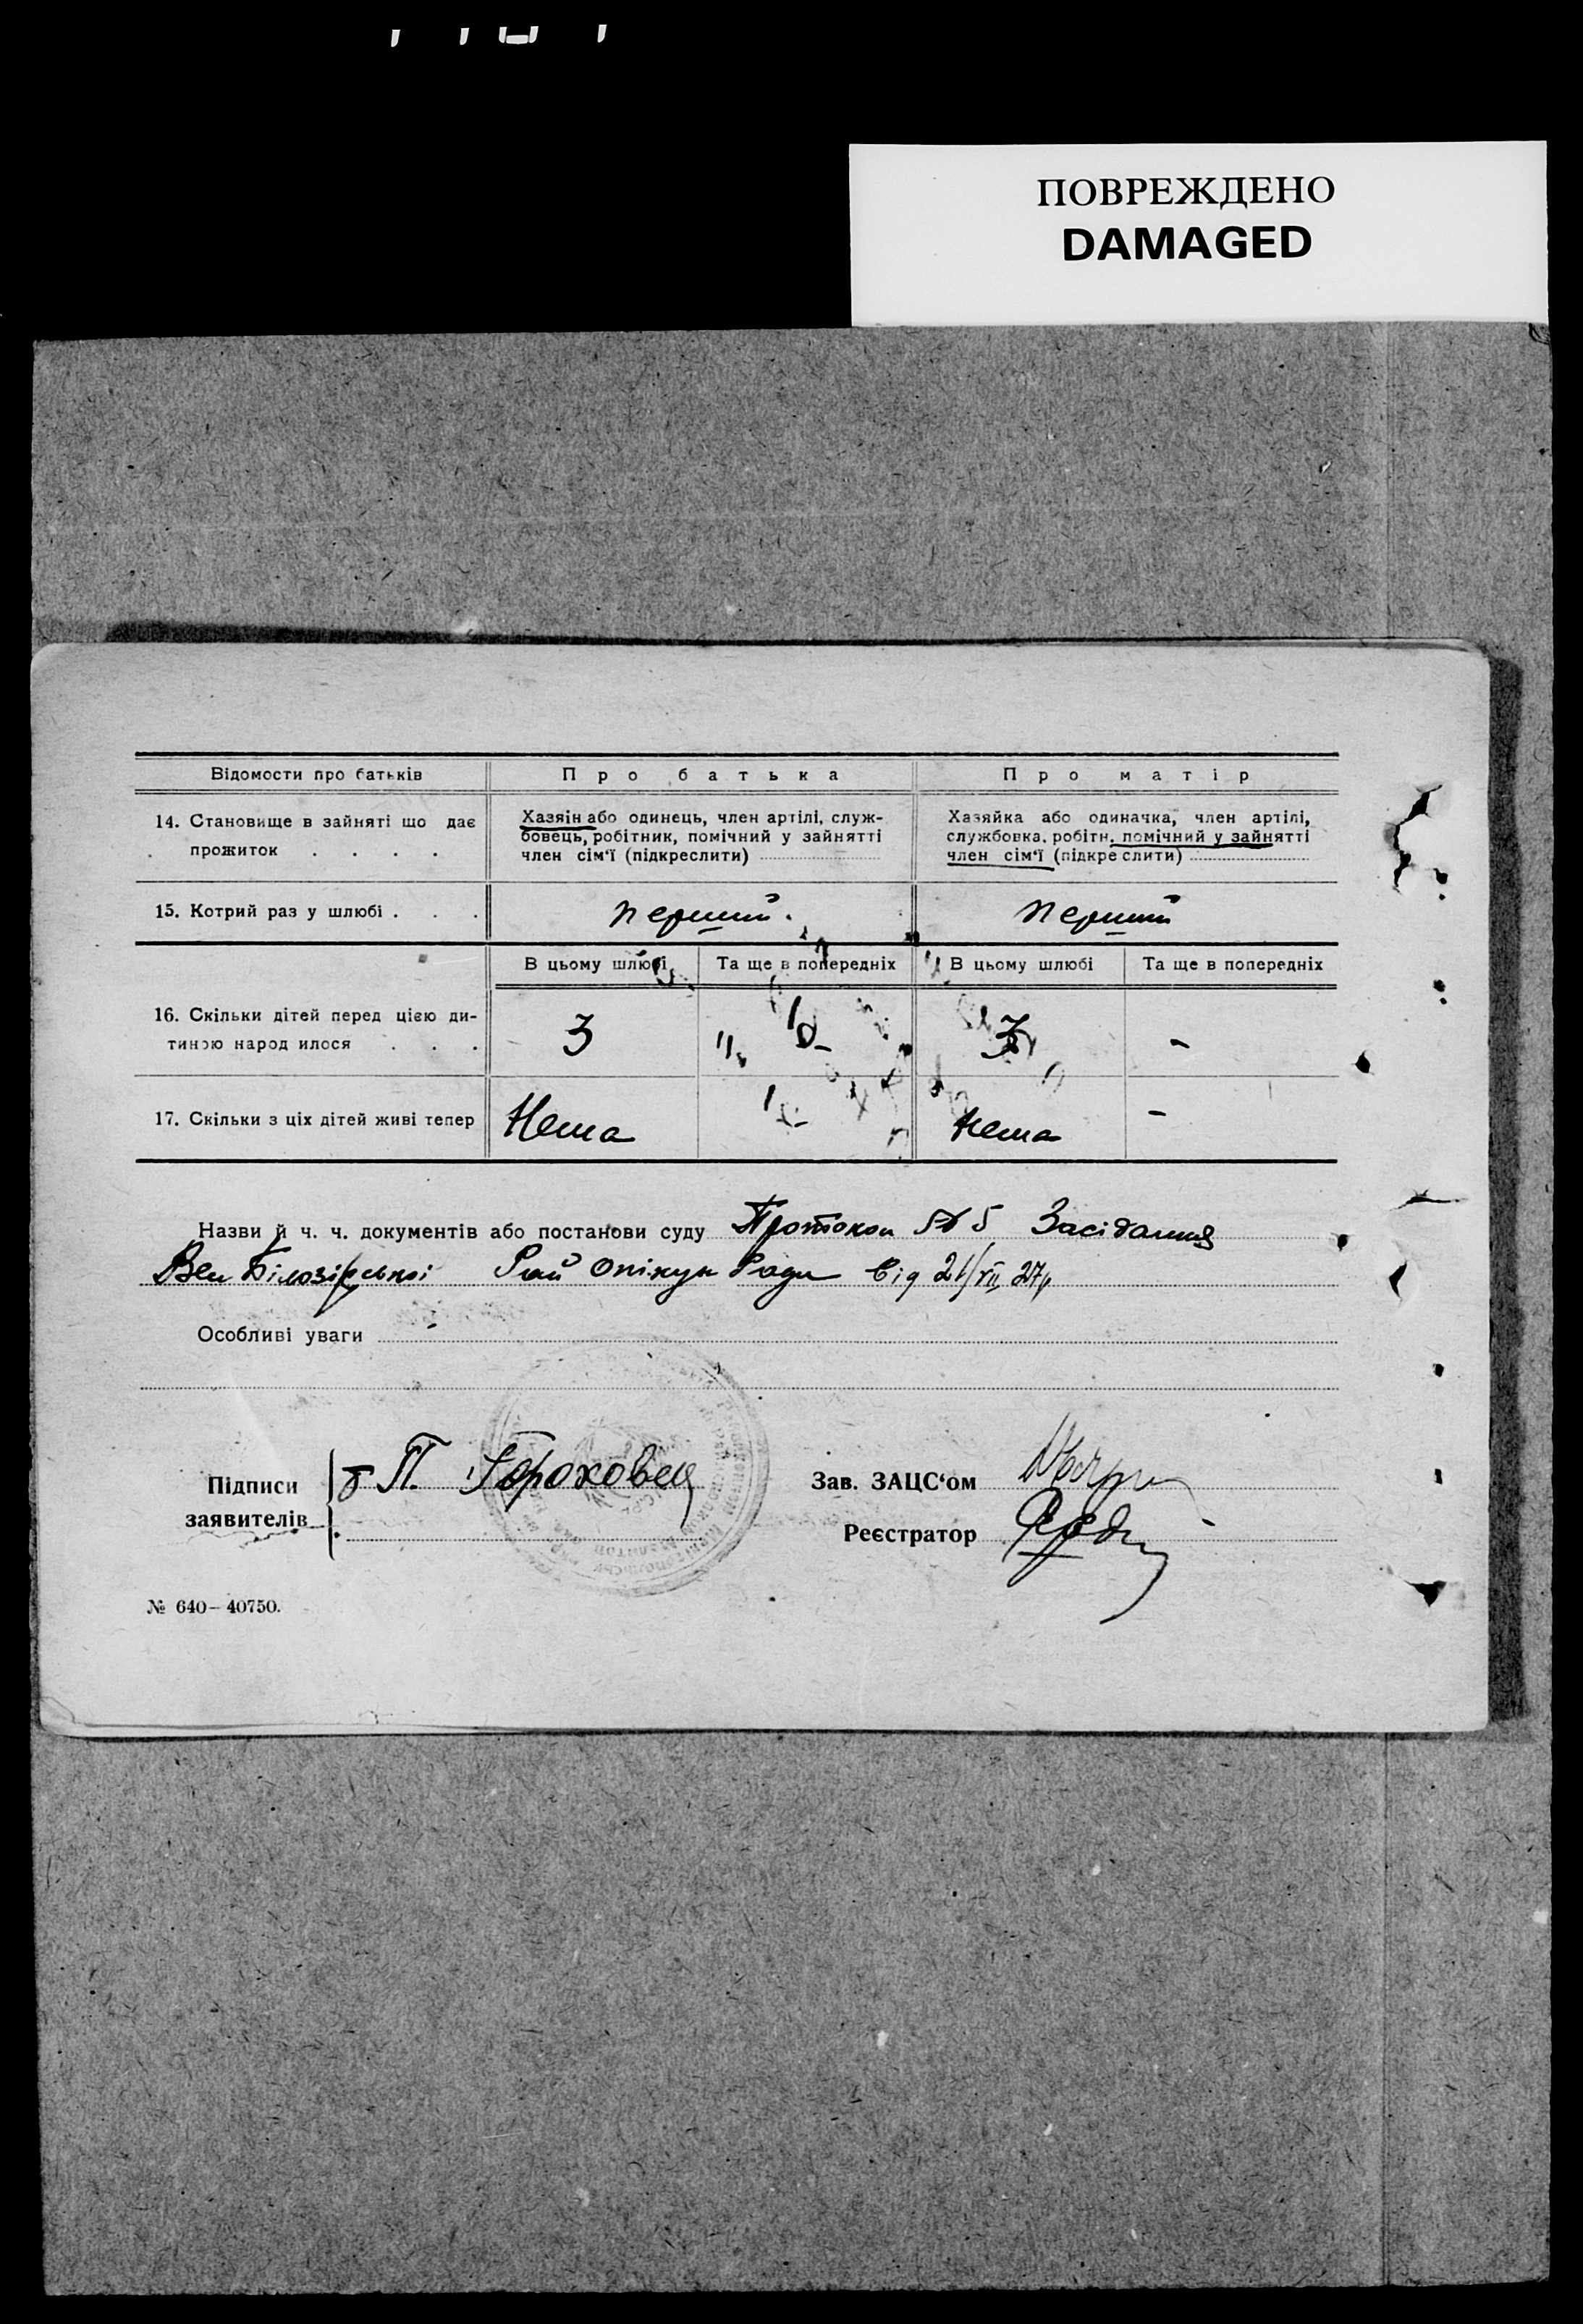 ПОВРЕЖДЕНО
DAMAGED
Відомости про батьків
Про батька
Про матір
14. Становище в зайняті що дає
прожиток . . . .
Хазяін або одинець, член артілі, служ-
бовець, робітник, помічний у зайнятті
член сім'ї (підкреслити)
Хазяйка або одиначка, член артілі,
службовка, робітн. помічний у зайнятті
член сім'ї (підкреслити)
15. Котрий раз у шлюбі . . .
перший.
перший
В цьому шлюбі
Та ще в попередніх
В цьому шлюбі
Та ще в попередніх
16. Скільки дітей перед цією ди-
тиною народилося . . .
3
3
-
17. Скільки з ціх дітей живі тепер
Нема
Нема
-
Назви й ч. ч. документів або постанови суду Протокол № 5 Засідання
Вел Білозірської Рай Опікун Ради від 21/VII 27р
Особливі уваги -
Підписи
заявителів
П. Гороховец
Зав. ЗАЦС'ом
Реєстратор
№ 640–40750.